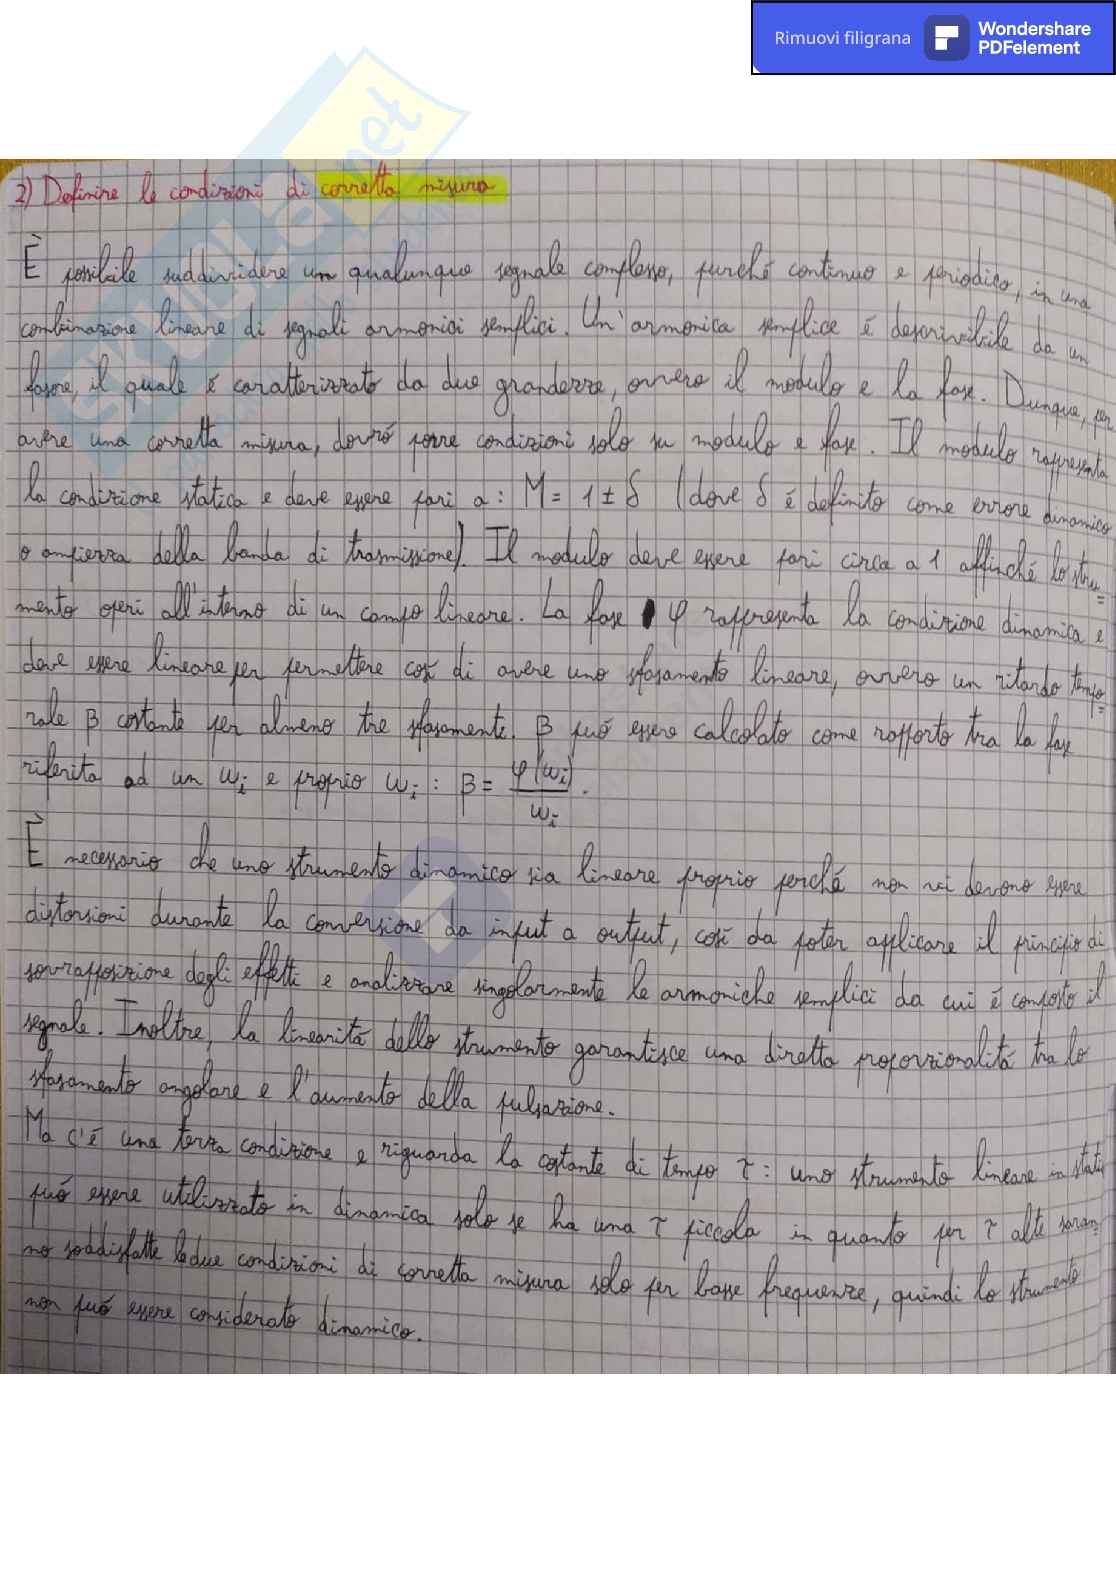 Rimuovi filigrana
Wondershare
PDFelement
2) Definire le condizioni di corretta misura
È possibile suddividere un qualunque segnale complesso, purché continuo e periodico, in una
combinazione lineare di segnali armonici semplici. Un'armonica semplice é descrivibile da un
fasore, il quale é caratterizzato da due grandezze, ovvero il modulo e la fase. Dunque, per
avere una corretta misura, dovró porre condizioni solo su modulo e fase. Il modulo rappresenta
la condizione statica e deve essere pari a: M = 1 ± δ (dove δ é definito come errore dinamico
o ampiezza della banda di trasmissione). Il modulo deve essere pari circa a 1 affinché lo stru=
mento operi all'interno di un campo lineare. La fase φ rappresenta la condizione dinamica e
deve essere lineare per permettere cosí di avere uno sfasamento lineare, ovvero un ritardo tempo=
rale β costante per almeno tre sfasamenti. β puó essere calcolato come rapporto tra la fase
riferita ad un ωi e proprio ωi : β = φ(ωi)/ωi .
È necessario che uno strumento dinamico sia lineare proprio perché non vi devono essere
distorsioni durante la conversione da input a output, cosí da poter applicare il principio di
sovrapposizione degli effetti e analizzare singolarmente le armoniche semplici da cui é composto il
segnale. Inoltre, la linearitá dello strumento garantisce una diretta proporzionalitá tra lo
sfasamento angolare e l'aumento della pulsazione.
Ma c'é una terza condizione e riguarda la costante di tempo τ : uno strumento lineare in statica
puó essere utilizzato in dinamica solo se ha una τ piccola in quanto per τ alte saran=
no soddisfatte le due condizioni di corretta misura solo per basse frequenze, quindi lo strumento
non puó essere considerato dinamico.